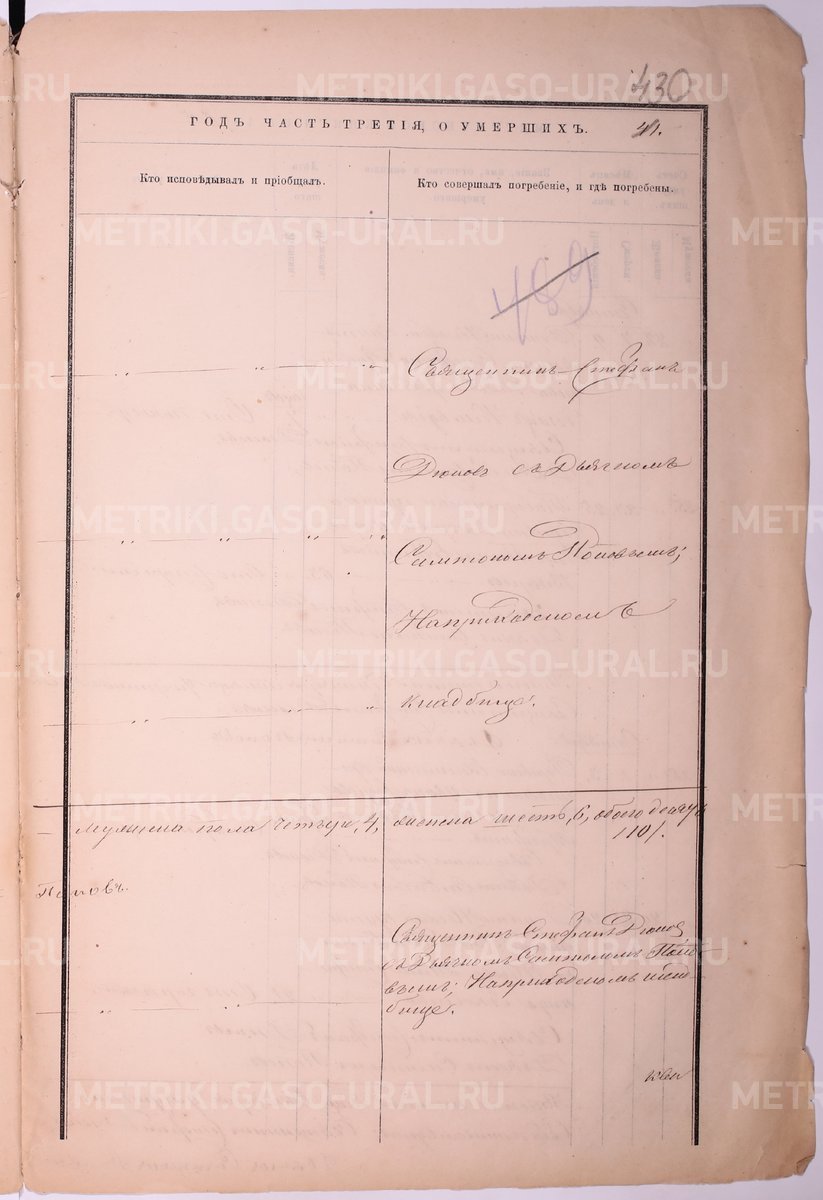 430
ГОДЪ ЧАСТЬ ТРЕТІЯ, О УМЕРШИХЪ. 41.
Кто исповѣдывалъ и пріобщалъ.
Кто совершалъ погребеніе, и гдѣ погребены.
489
Священникъ Стефанъ
Дюковъ съ Дьячкомъ
Поповымъ;
На приходскомъ
кладбище.
Мужеска пола четыре, 4, женска шесть, 6, обоего десять
/10/.
Поповъ.
Священникъ Стефанъ Дюков
съ Дьячкомъ Попо
вымъ; На приходскомъ клад
бище.
METRIKI.GASO-URAL.RU